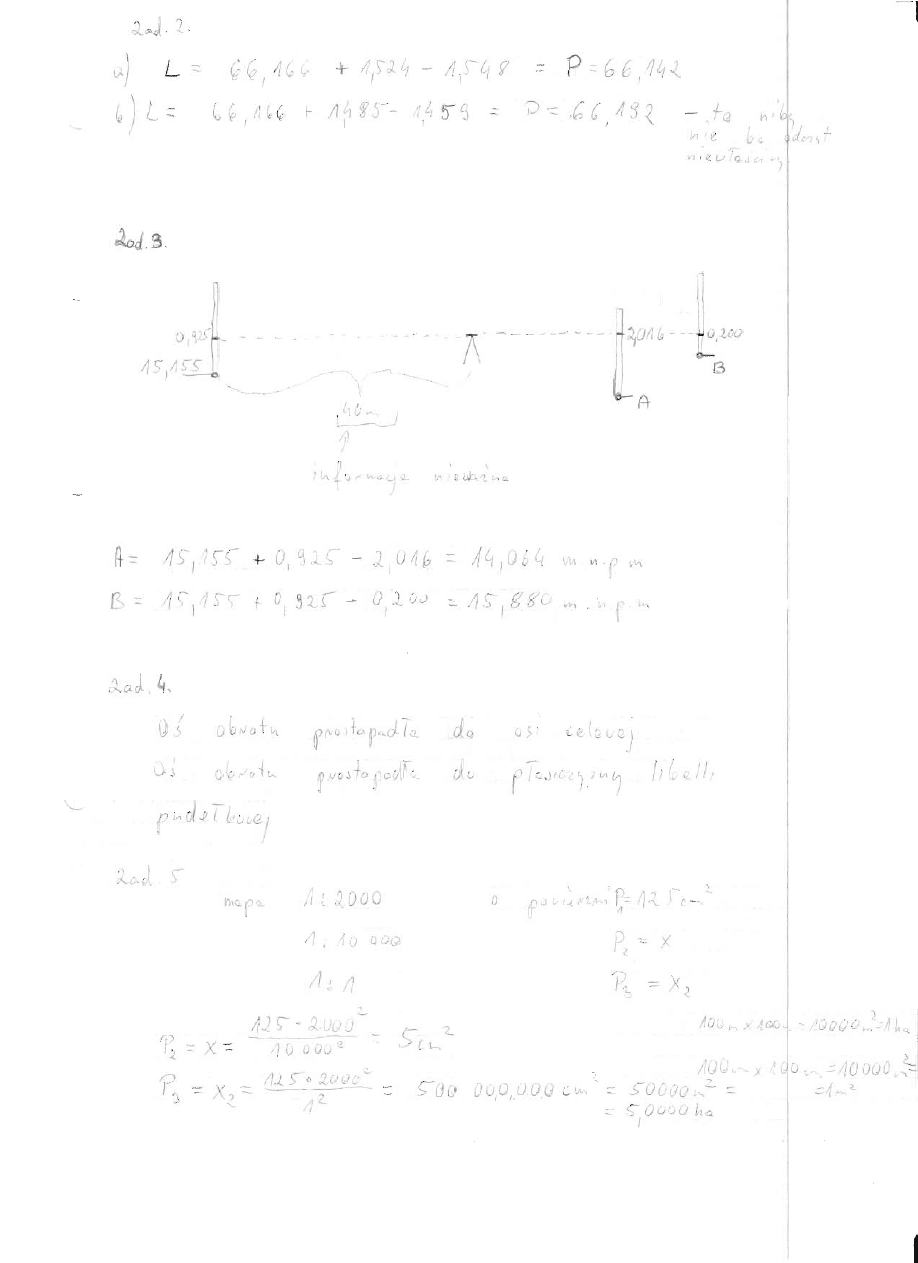 Zad. 2.
a) L = 66,166 + 1,524 - 1,548 = P = 66,142
b) L = 66,166 + 1,485 - 1,459 = P = 66,192 - ta niby
nie ba
Zad. 3.
0,925
2,016
0,200
15,155
B
A
46m
informacja nieważna
A = 15,155 + 0,925 - 2,016 = 14,064 m n.p m
B = 15,155 + 0,925 - 0,200 = 15,880 m.n.p.m
Zad. 4.
Oś obrotu prostopadła do osi celowej
Oś obrotu prostopadła do płaszczyzny libelli
pudełkowej
Zad. 5
mapa 1:2000 o powierzni P₁=125cm²
1:10 000 P₂ = x
1:1 P₃ = x₂
P₂ = x = 125 · 2000² / 10 000² = 5cm²
100m x 100m = 10000m² = 1ha
P₃ = x₂ = 125 · 2000² / 1² = 500 000,000 cm² = 50000m² =
= 5,0000 ha
100m x 100m = 10000m² =
= 1m²